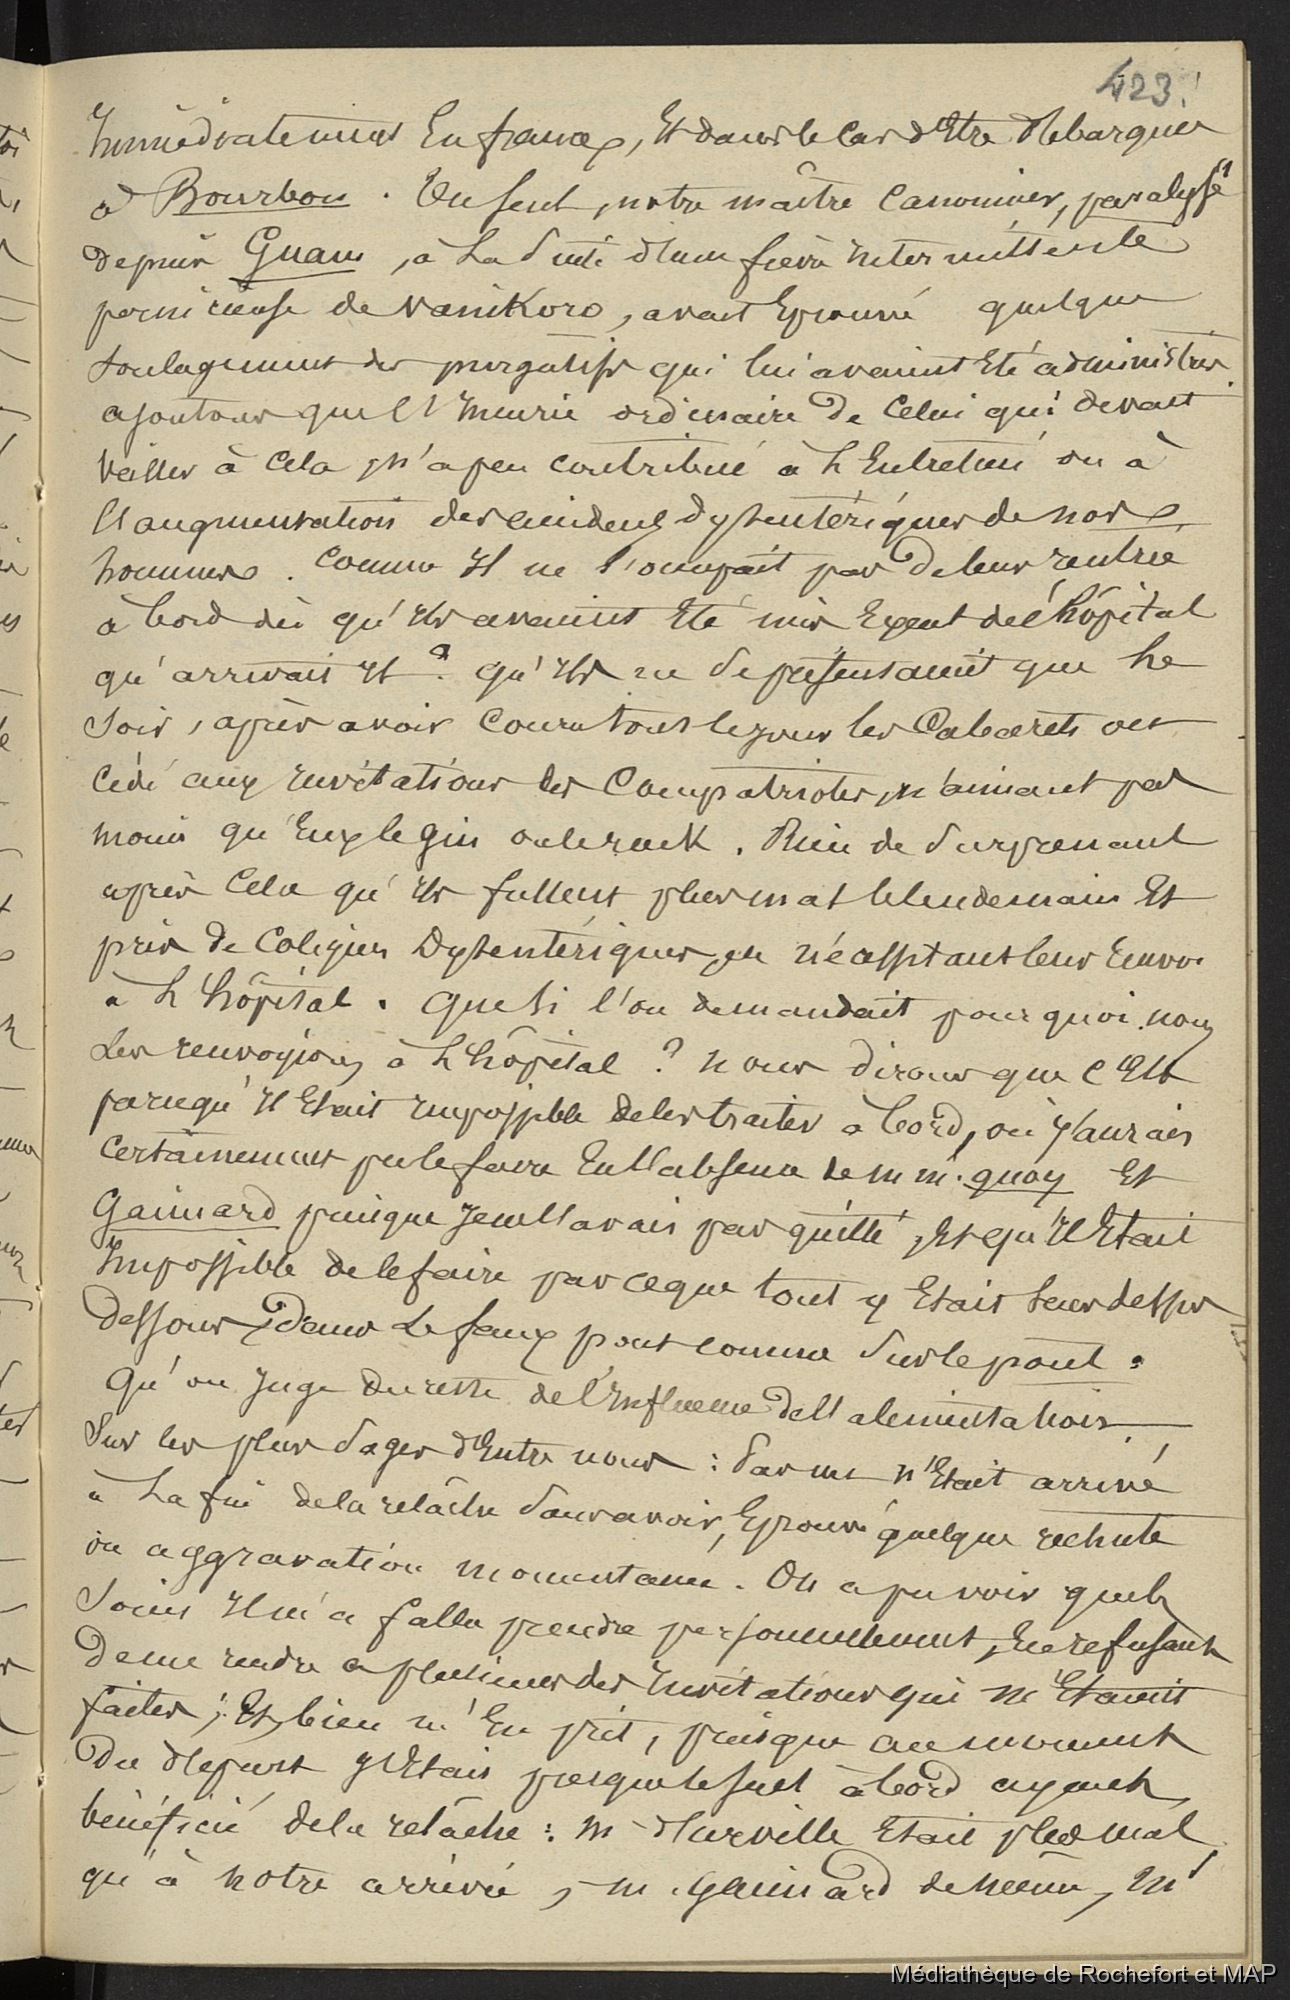 423.
Immédiatement En france, Et dans le Cas d'Etre débarqués
à Bourbon. Un seul, notre maître Canonnier, paralysé
depuis Guam, à La suite d'une fièvre Intermittente
pernicieuse de Vanikoro, avait Eprouvé quelque
soulagement des purgatifs qui lui avaient Eté administrés.
ajoutons que l'Incurie ordinaire de Celui qui devait
Veiller à Cela, n'a peu contribué à L'Entretien ou à
l'augmentation des accidens dysentériques de nos
hommes. Comme Il ne s'occupait pas de leur rentrée
à bord dès qu'Ils avaient Eté mis Exeat de l'hôpital
qu'arrivait Il ? qu'Ils ne se présentaient que Le
soir, après avoir Couru tout le jour les Cabarets ou
Cédé aux Invitations des Compatriotes, n'aimant pas
moins qu'Eux le gin ou le rack. Rien de surprenant
après Cela qu'Ils fussent plus mal le lendemain Et
pris de Coliques Dysentériques, en nécessitant leur Envoi
à L'hôpital. Que si l'on demandait pourquoi nous
Les renvoyions à L'hôpital ? nous dirons que C'Est
parcequ'Il Etait Impossible de les traiter à bord, où j'aurais
Certainement pu le faire En l'absence de m m. quoy Et
Gaimard puisque Je ne l'avais pas quitté, Et qu'Il Etait
Impossible de le faire parceque tout y Etait sens dessus
dessous, Dans Le faux pont comme sur le pont.
Qu'on Juge du reste de l'Influence de l'alimentation
Sur les plus sages d'Entre nous : pas un n'Etait arrivé
à La fin de la relâche sans avoir Eprouvé quelque rechute
ou aggravation momentanée. On a pu voir quels
Soins Il m'a fallu prendre personnellement, En refusant
De me rendre a plusieurs des Invitations qui m'Etaient
faites ; Et bien m'En prit, puisque au moment
Du départ J'Etais presque le seul à bord ayant
bénéficié de la relâche : m d'urville Etait plus mal
qu'à notre arrivée, m. gaimard de même, m
Médiathèque de Rochefort et MAP